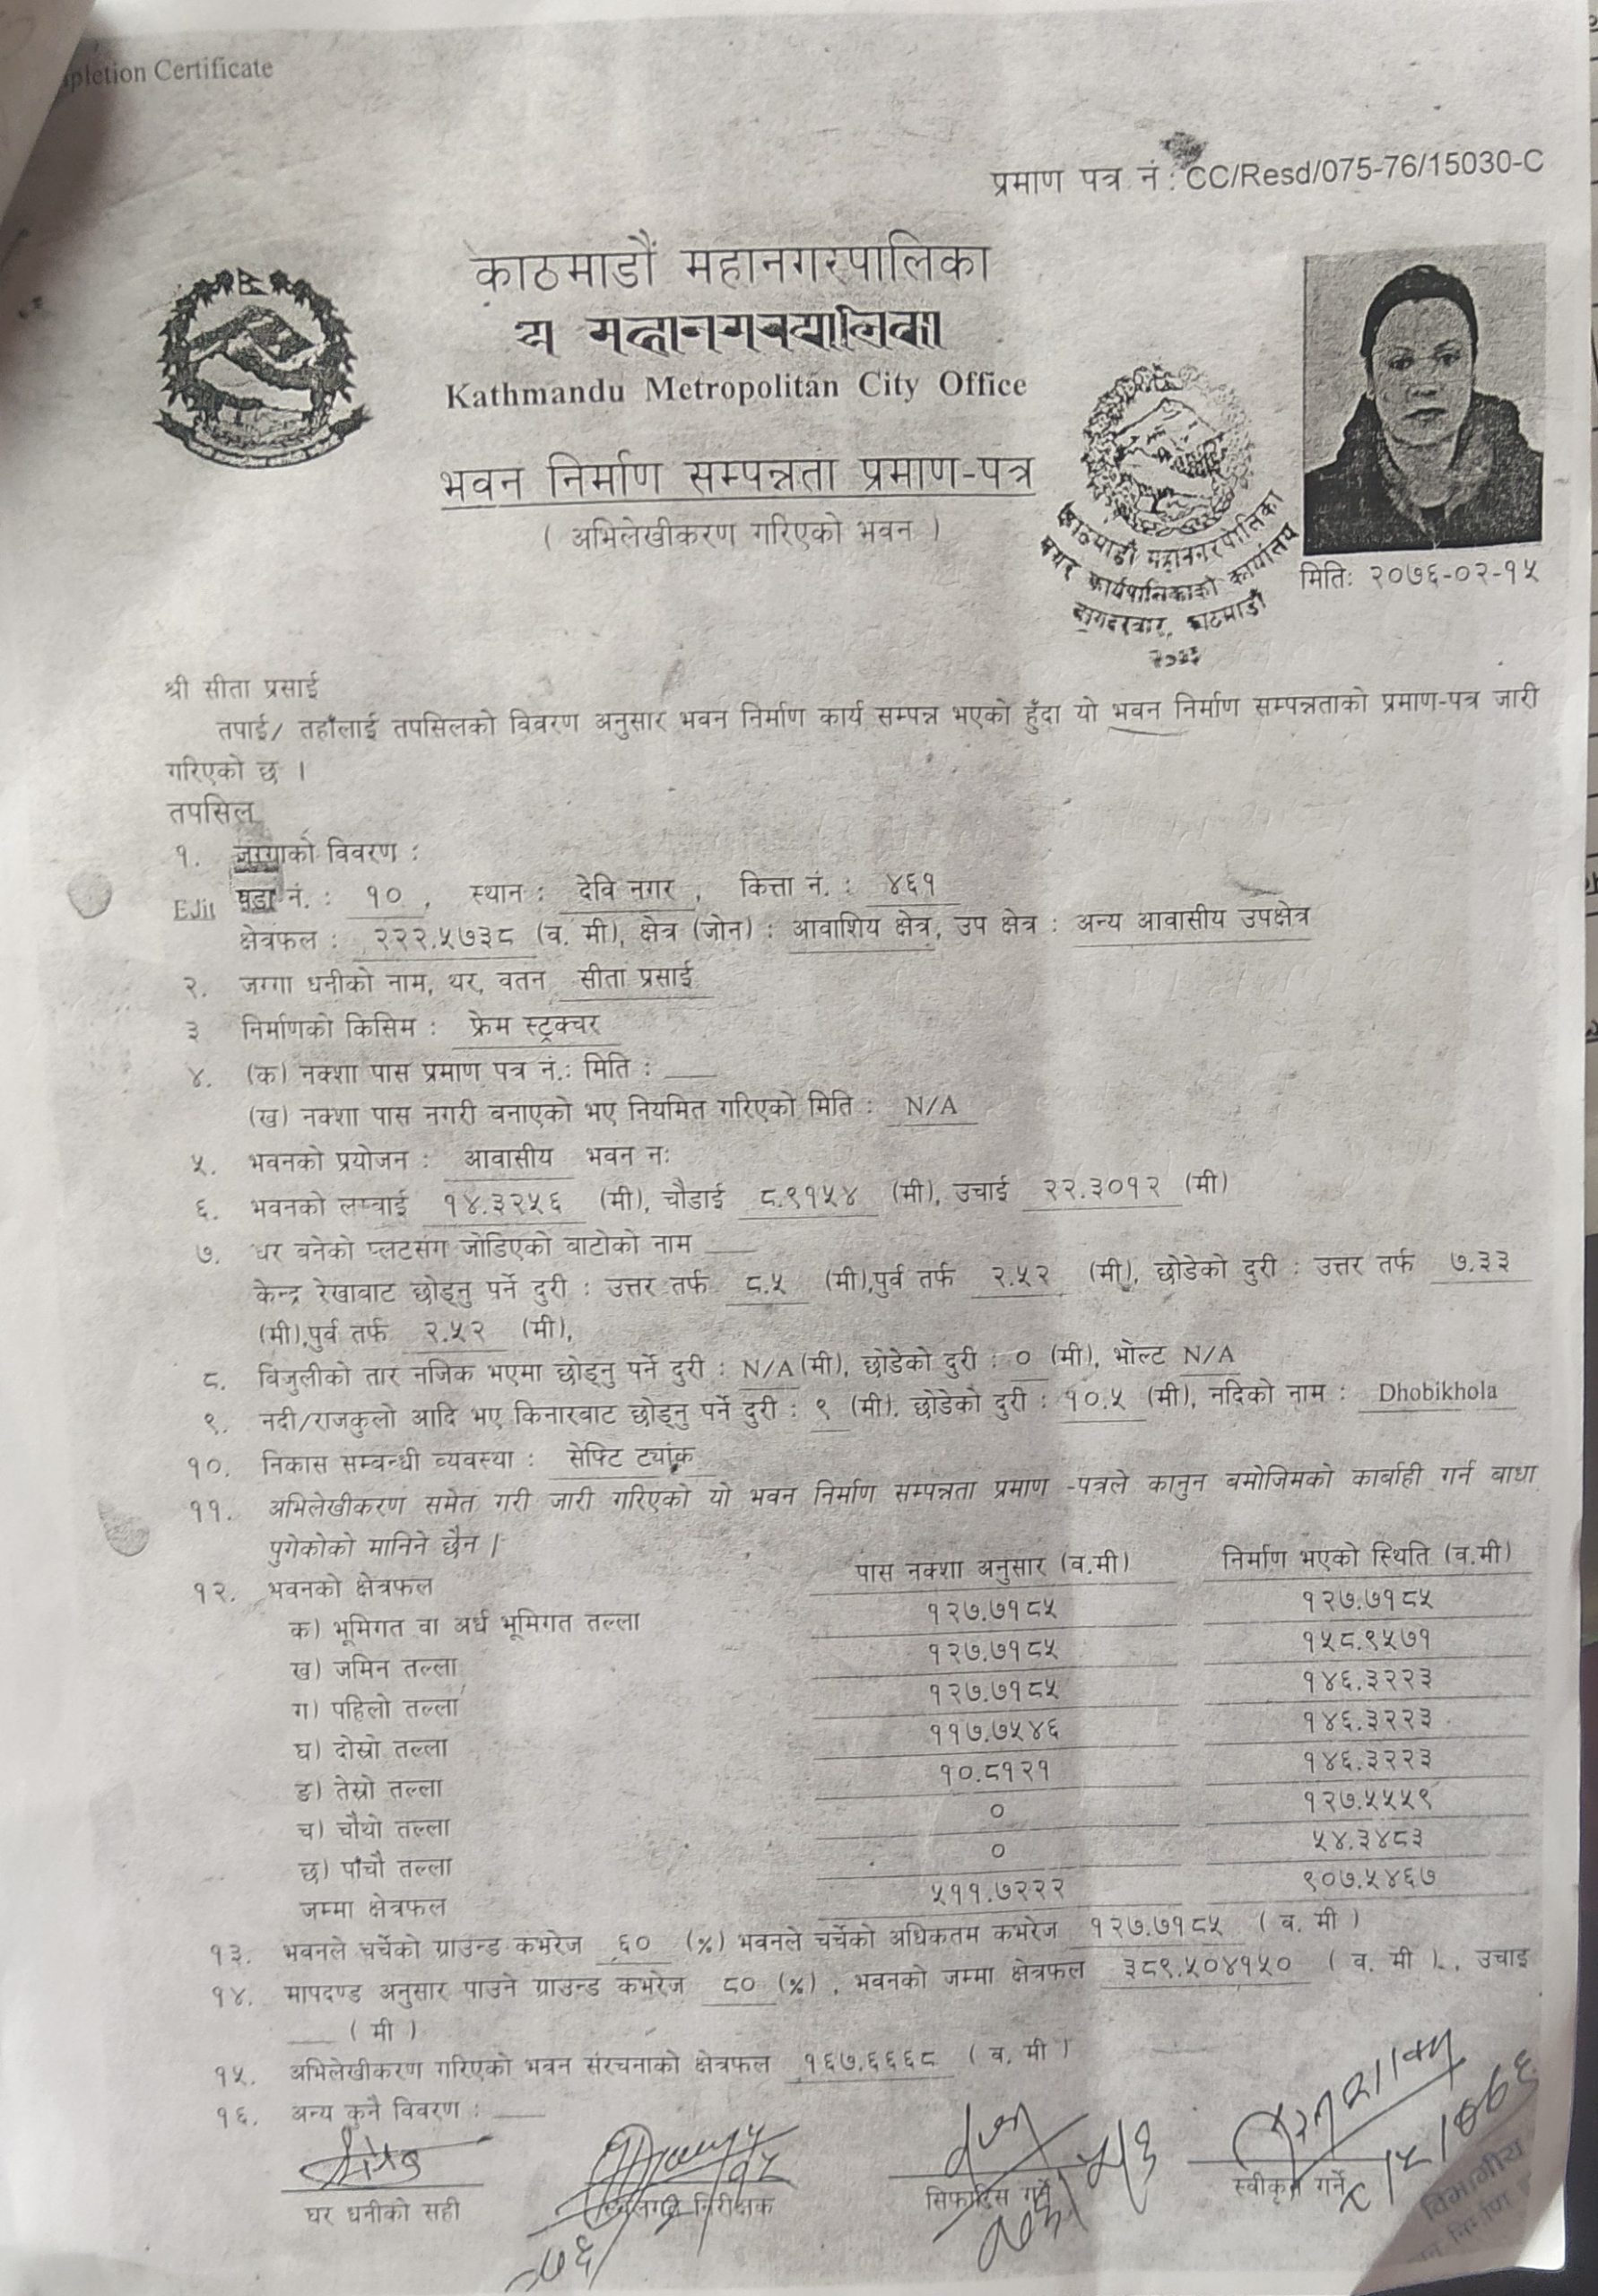 Completion Certificate
प्रमाण पत्र नं : CC/Resd/075-76/15030-C
काठमाडौं महानगरपालिका
Kathmandu Metropolitan City Office
भवन निर्माण सम्पन्नता प्रमाण-पत्र
( अभिलेखीकरण गरिएको भवन )
काठमाडौं महानगरपालिका
नगर कार्यपालिकाको कार्यालय
बागदरबार, काठमाडौं
मितिः २०७६-०२-१५
श्री सीता प्रसाई
तपाई/ तहाँलाई तपसिलको विवरण अनुसार भवन निर्माण कार्य सम्पन्न भएको हुँदा यो भवन निर्माण सम्पन्नताको प्रमाण-पत्र जारी
गरिएको छ ।
तपसिल
१. जग्गाको विवरण :
Edit वडा नं. : १० , स्थान : देवि नगर , कित्ता नं. : ४६१
क्षेत्रफल : २२२.५७३८ (व. मी), क्षेत्र (जोन) : आवाशिय क्षेत्र, उप क्षेत्र : अन्य आवासीय उपक्षेत्र
२. जग्गा धनीको नाम, थर, वतन सीता प्रसाई
३ निर्माणको किसिम : फ्रेम स्ट्रक्चर
४. (क) नक्शा पास प्रमाण पत्र नं.: मिति :
(ख) नक्शा पास नगरी बनाएको भए नियमित गरिएको मिति : N/A
५. भवनको प्रयोजन : आवासीय भवन नः
६. भवनको लम्वाई १४.३२५६ (मी), चौडाई ८.९१५४ (मी), उचाई २२.३०१२ (मी)
७. घर बनेको प्लटसंग जोडिएको बाटोको नाम
केन्द्र रेखाबाट छोड्नु पर्ने दुरी : उत्तर तर्फ ८.५ (मी),पुर्व तर्फ २.५२ (मी), छोडेको दुरी : उत्तर तर्फ ७.३३
(मी),पुर्व तर्फ २.५२ (मी),
८. विजुलीको तार नजिक भएमा छोड्नु पर्ने दुरी : N/A (मी), छोडेको दुरी : ० (मी), भोल्ट N/A
९. नदी/राजकुलो आदि भए किनारबाट छोड्नु पर्ने दुरी : ९ (मी), छोडेको दुरी : १०.५ (मी), नदिको नाम : Dhobikhola
१०. निकास सम्बन्धी व्यवस्था : सेफ्टि ट्यांक
११. अभिलेखीकरण समेत गरी जारी गरिएको यो भवन निर्माण सम्पन्नता प्रमाण -पत्रले कानुन बमोजिमको कार्बाही गर्न बाधा
पुगेकोको मानिने छैन ।
१२. भवनको क्षेत्रफल पास नक्शा अनुसार (व.मी) निर्माण भएको स्थिति (व.मी)
क) भूमिगत वा अर्ध भूमिगत तल्ला १२७.७१८५ १२७.७१८५
ख) जमिन तल्ला १२७.७१८५ १५८.९५७१
ग) पहिलो तल्ला १२७.७१८५ १४६.३२२३
घ) दोस्रो तल्ला ११७.७५४६ १४६.३२२३
ङ) तेस्रो तल्ला १०.८१२१ १४६.३२२३
च) चौथो तल्ला ० १२७.५५५९
छ) पाँचौ तल्ला ० ५४.३४८३
जम्मा क्षेत्रफल ५११.७२२२ ९०७.५४६७
१३. भवनले चर्चेको ग्राउन्ड कभरेज ६० (%) भवनले चर्चेको अधिकतम कभरेज १२७.७१८५ ( व. मी )
१४. मापदण्ड अनुसार पाउने ग्राउन्ड कभरेज ८० (%) , भवनको जम्मा क्षेत्रफल ३८९.५०४१५० ( व. मी ) , उचाइ
( मी )
१५. अभिलेखीकरण गरिएको भवन संरचनाको क्षेत्रफल १६७.६६६८ ( व. मी )
१६. अन्य कुनै विवरण :
घर धनीको सही निरीक्षक सिफारिस गर्ने स्वीकृत गर्ने
विभागीय